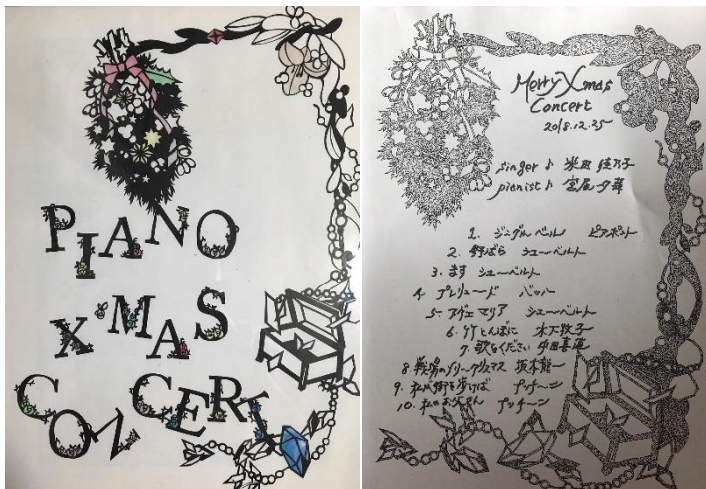 PIANO
X'MAS
CONCERT
Merry Xmas
Concert
2018.12.25
singer ♪ 米田
pianist ♪ 宮尾 夕華
1. ジングルベル ピアポント
2. 野ばら シューベルト
3. ます シューベルト
4. プレリュード バッハ
5. アヴェマリア シューベルト
6. 竹とんぼに 木下牧子
7. 歌をください 中田喜直
8. 戦場のメリークリスマス 坂本龍一
9. 私が街を歩けば プッチーニ
10. 私のお父さん プッチーニ